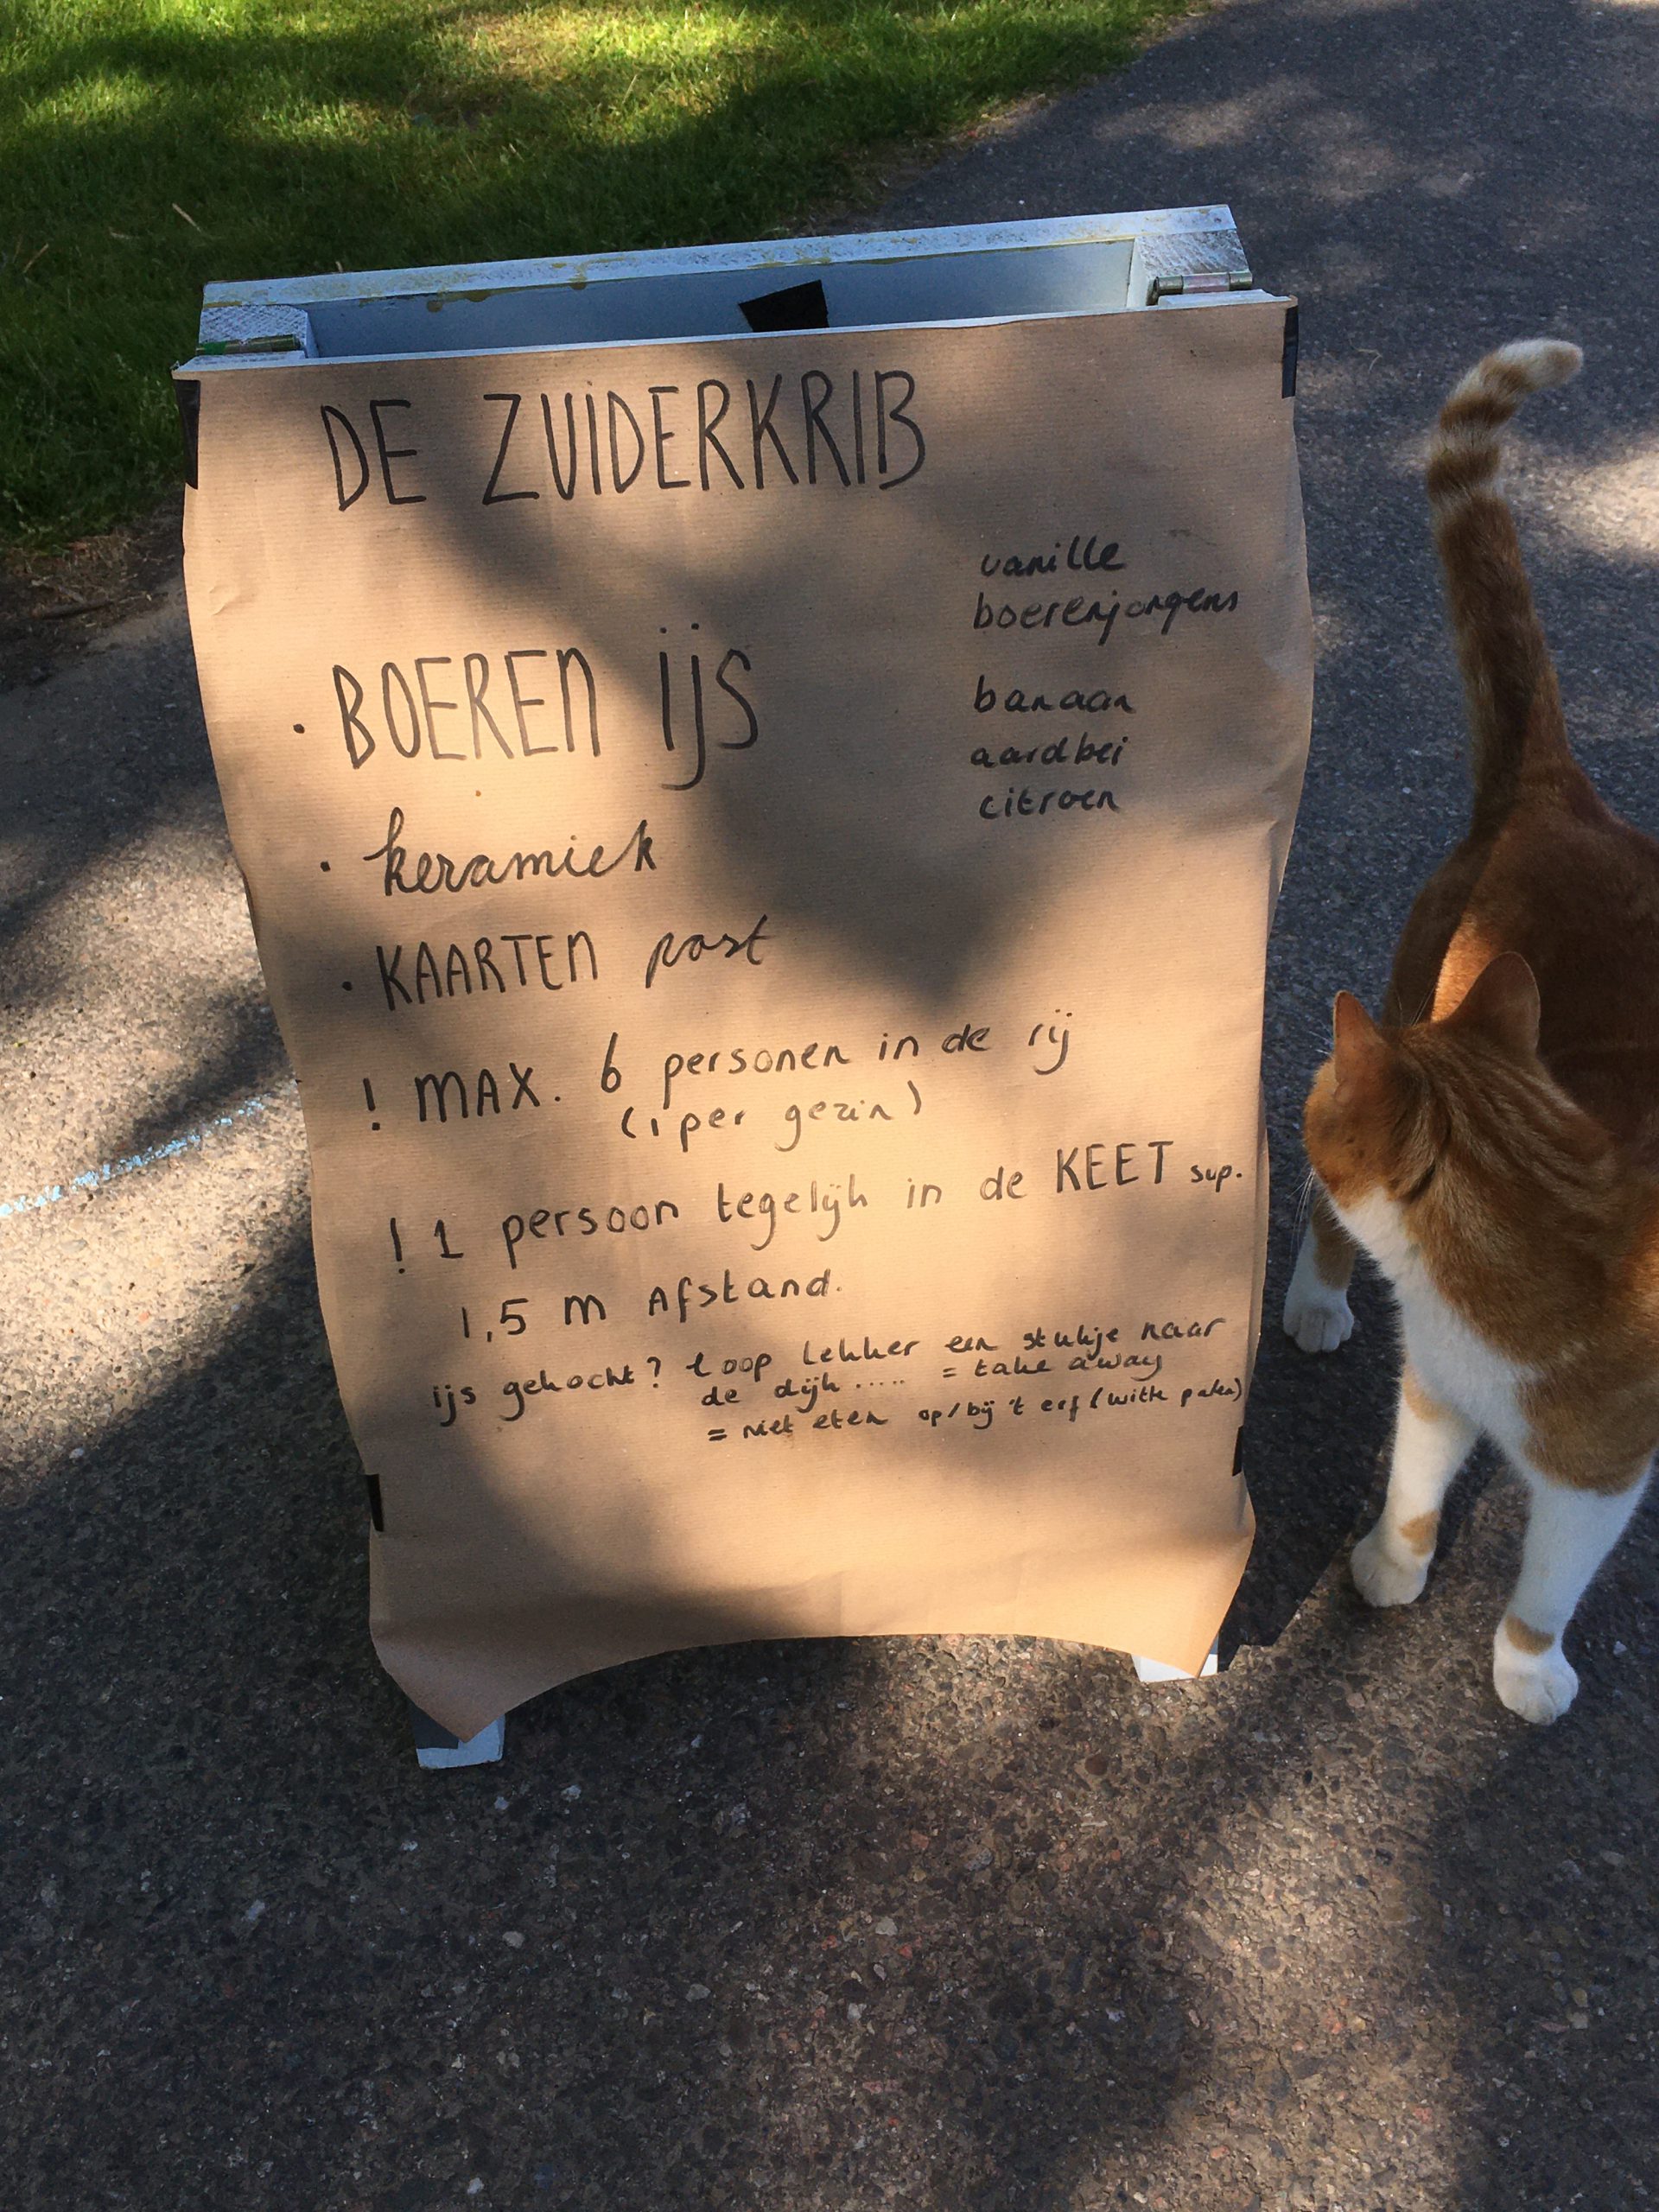 DE ZUIDERKRIB
vanille
boerenjongens
banaan
aardbei
citroen
· BOEREN ijs
· keramiek
· KAARTEN post
! MAX. 6 personen in de rij
(1 per gezin)
! 1 persoon tegelijk in de KEET svp.
1,5 m Afstand.
ijs gekocht? Loop lekker een stukje naar
de dijk ..... = take away
= niet eten op/bij 't erf (witte palen)